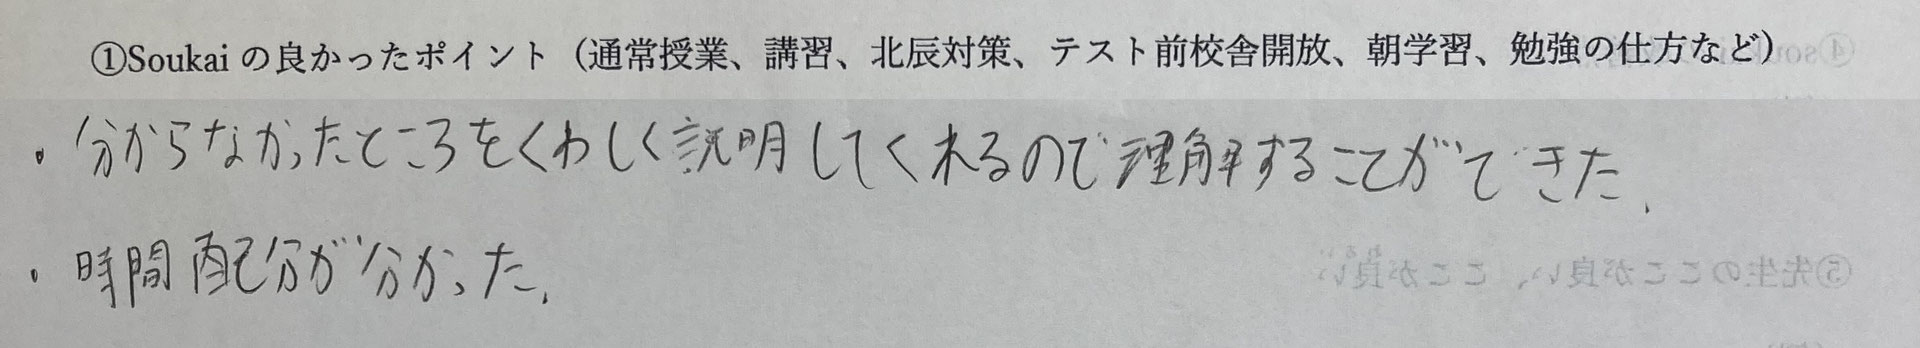 ①Soukai の良かったポイント（通常授業、講習、北辰対策、テスト前校舎開放、朝学習、勉強の仕方など）
・分からなかったところをくわしく説明してくれるので理解することができた.
・時間配分が分かった.
⑤先生のここが良い、ここが良い